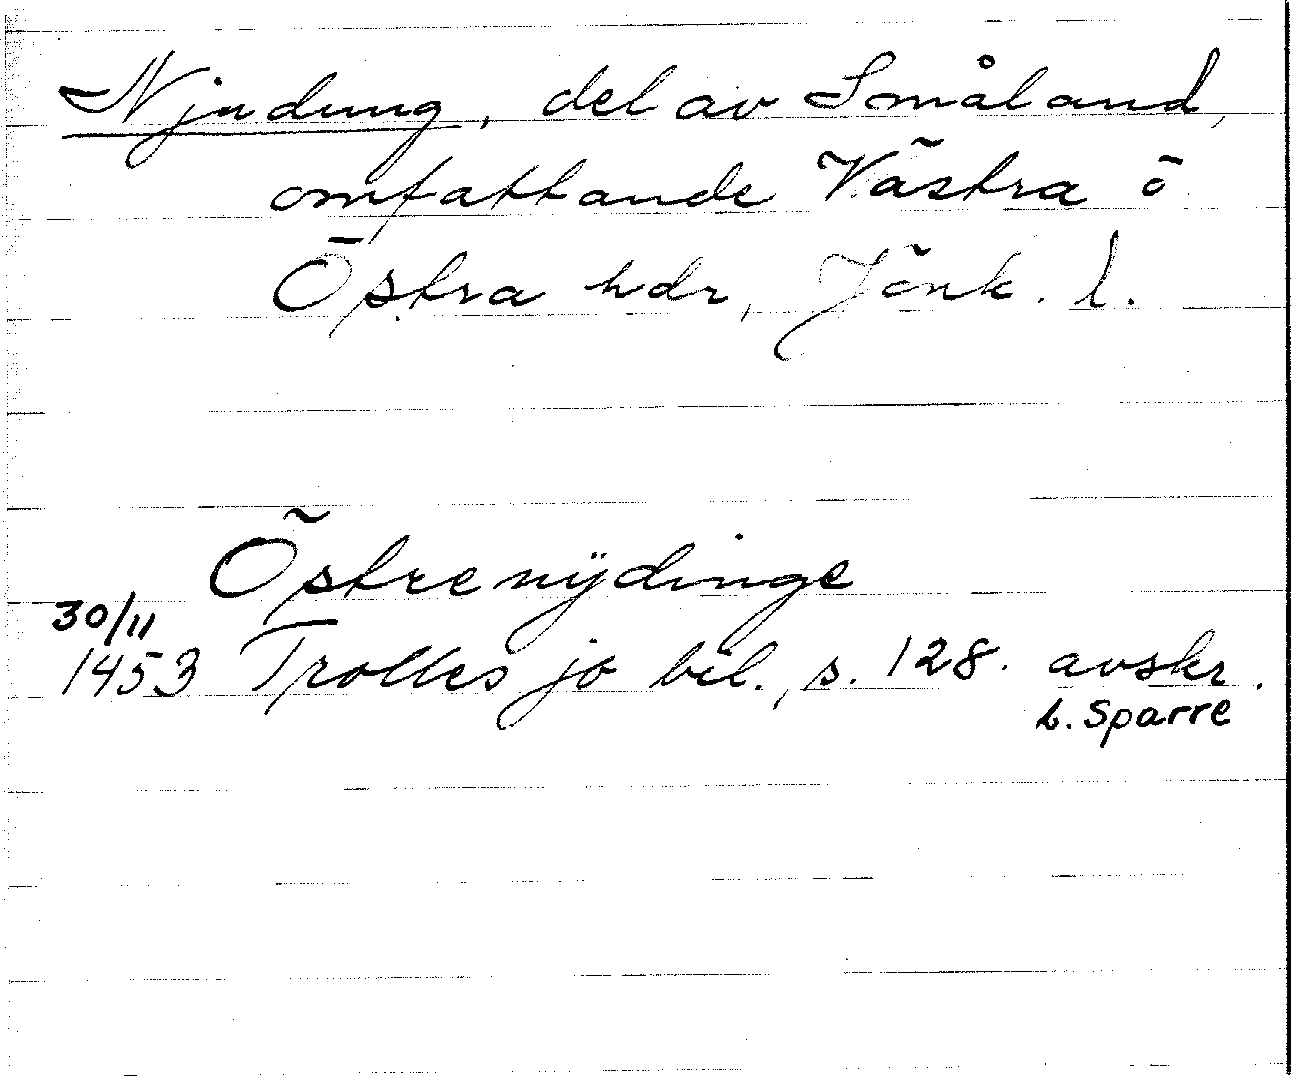 Njudung, del av Småland,
omfattande Västra o
Östra hdr, Jönk. l.
Östre nÿdinge
30/11
1453 Trolles jb bil., s. 128. avskr.
L. Sparre